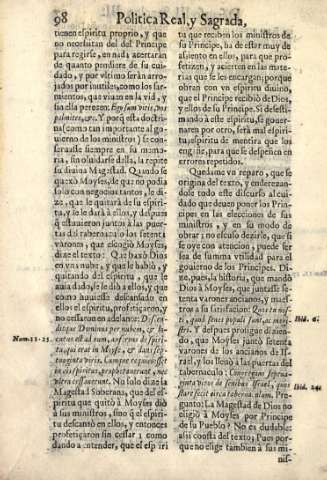 98 Politica Real, y Sagrada,
tienen espiritu proprio, y que
no necessitan del del Principe
para regirse, en nada acertaràn
de quanto pendiere de su cui-
dado, y por vltimo seràn arro-
jados por inutiles, como los sar-
mientos, que viuen en la vid, y
sin ella perecen: Ego sum vitis, vos
palmites, &c. Y porq̃ esta doctri-
na (como tan importante al go-
uierno de los ministros) se con-
seruasse siempre en su memo-
ria, sin oluidarse della, la repite
su diuina Magestad. Quando se
quexò Moyses, de que no podia
solo con negocios tantos, le di-
ze, que le quitarà de su espiri-
tu, y le le darà à ellos, y despues
q̃ estuuieron juntos à las puer-
tas del tabernaculo los setenta
varones, que escogiò Moyses,
dize el texto: Que baxò Dios
en vna nube, y que le hablò, y
quitando del espiritu, que le
auia dado, le diò à ellos, y que
como huuiesse descansado en
ellos el espiritu, profetizaron, y
no cessaron en adelante: Descen-
ditque Dominus per nubem, & lo-
cutus est ad eum, auferens de spiri-
Num. 11. 25.
tu, qui erat in Moyse, & dans sep-
tuaginta viris. Cumque requieuisset
in eis spiritus, prophetauerunt, nec
vltra cessauerunt. No solo dize la
Magestad Soberana, que del es-
piritu que quitò à Moyses diò
à sus ministros, sino q̃ el espiri-
tu descansò en ellos, y entonces
profetiçaron sin cessar: como
dando à entender, que el espiri
tu que reciben los ministros de
su Principe, ha de estar muy de
assiento en ellos, para que pro-
fetizen, y acierten en las mate-
rias que se les encargan; porque
obran con vn espiritu diuino,
que el Principe recibiò de Dios,
y ellos de su Principe. Si desesti-
mando à este espiritu, se gouer-
naren por otro, serà mal espiri-
tu, espiritu de mentira que los
engañe, para que se despeñen en
errores repetidos.
Quedame vn reparo, que se
origina del texto, y endereçan-
dose todo este discurso al cui-
dado que deuen poner los Prin-
cipes en las elecciones de sus
ministros, y en su modo de
obrar; no escuso dezirle, que si
se oye con atencion, puede ser
sea de summa vtilidad para el
gouierno de los Principes. Di-
ze, pues, la historia, que mandò
Dios à Moyses, que juntasse se-
tenta varones ancianos, y maes-
tros à su satisfacion: Quos tu nos-
ti, quod senes populi sunt, ac magis-
Ibid. 6.
tri. Y despues prosigue dizien-
do, que Moyses juntò setenta
varones de los ancianos de Is-
rael, y los lleuò à las puertas del
tabernaculo: Congregans septua-
ginta viros de senibus Israel, quos
Ibid. 24.
stare fecit circa tabernaculum. Pre-
gunto: La Magestad de Dios no
eligiò à Moyses por Principe
de su Pueblo? No es dudable,
assi consta del texto; Pues por-
que no elige tambien à sus mi-
nis-